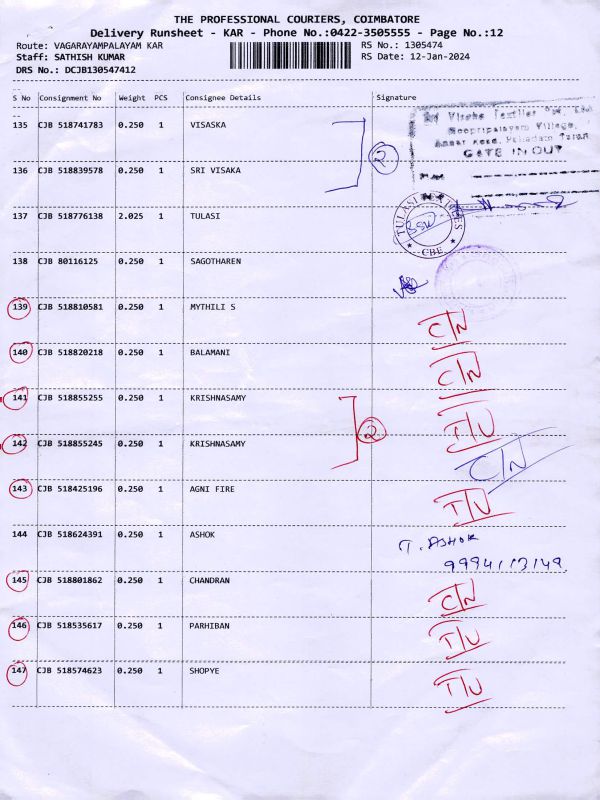 THE PROFESSIONAL COURIERS, COIMBATORE
Delivery Runsheet - KAR - Phone No.:0422-3505555 - Page No.:12
Route: VAGARAYAMPALAYAM KAR
RS No.: 1305474
Staff: SATHISH KUMAR
RS Date: 12-Jan-2024
DRS No.: DCJB130547412
S No Consignment No Weight PCS Consignee Details Signature
135 CJB 518741783 0.250 1 VISAKA
2
136 CJB 518839578 0.250 1 SRI VISAKA
GATE IN OUT
137 CJB 518776138 2.025 1 TULASI
TULASI
CBE
138 CJB 80116125 0.250 1 SAGOTHAREN
139 CJB 518810581 0.250 1 MYTHILI S C/N
140 CJB 518820218 0.250 1 BALAMANI C/N
141 CJB 518855255 0.250 1 KRISHNASAMY I/U
2
142 CJB 518855245 0.250 1 KRISHNASAMY C/N
143 CJB 518425196 0.250 1 AGNI FIRE I/U
144 CJB 518624391 0.250 1 ASHOK T. ASHOK
145 CJB 518801862 0.250 1 CHANDRAN C/N
146 CJB 518535617 0.250 1 PARHIBAN I/U
147 CJB 518574623 0.250 1 SHOPYE I/U